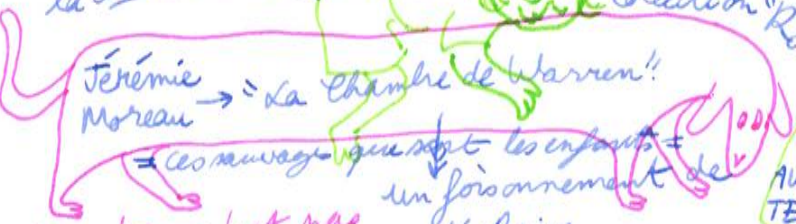 la
Jérémie
Moreau → "La Chambre de Warren"
= ces sauvages que sont les enfants =
un foisonnement de
AU
TE